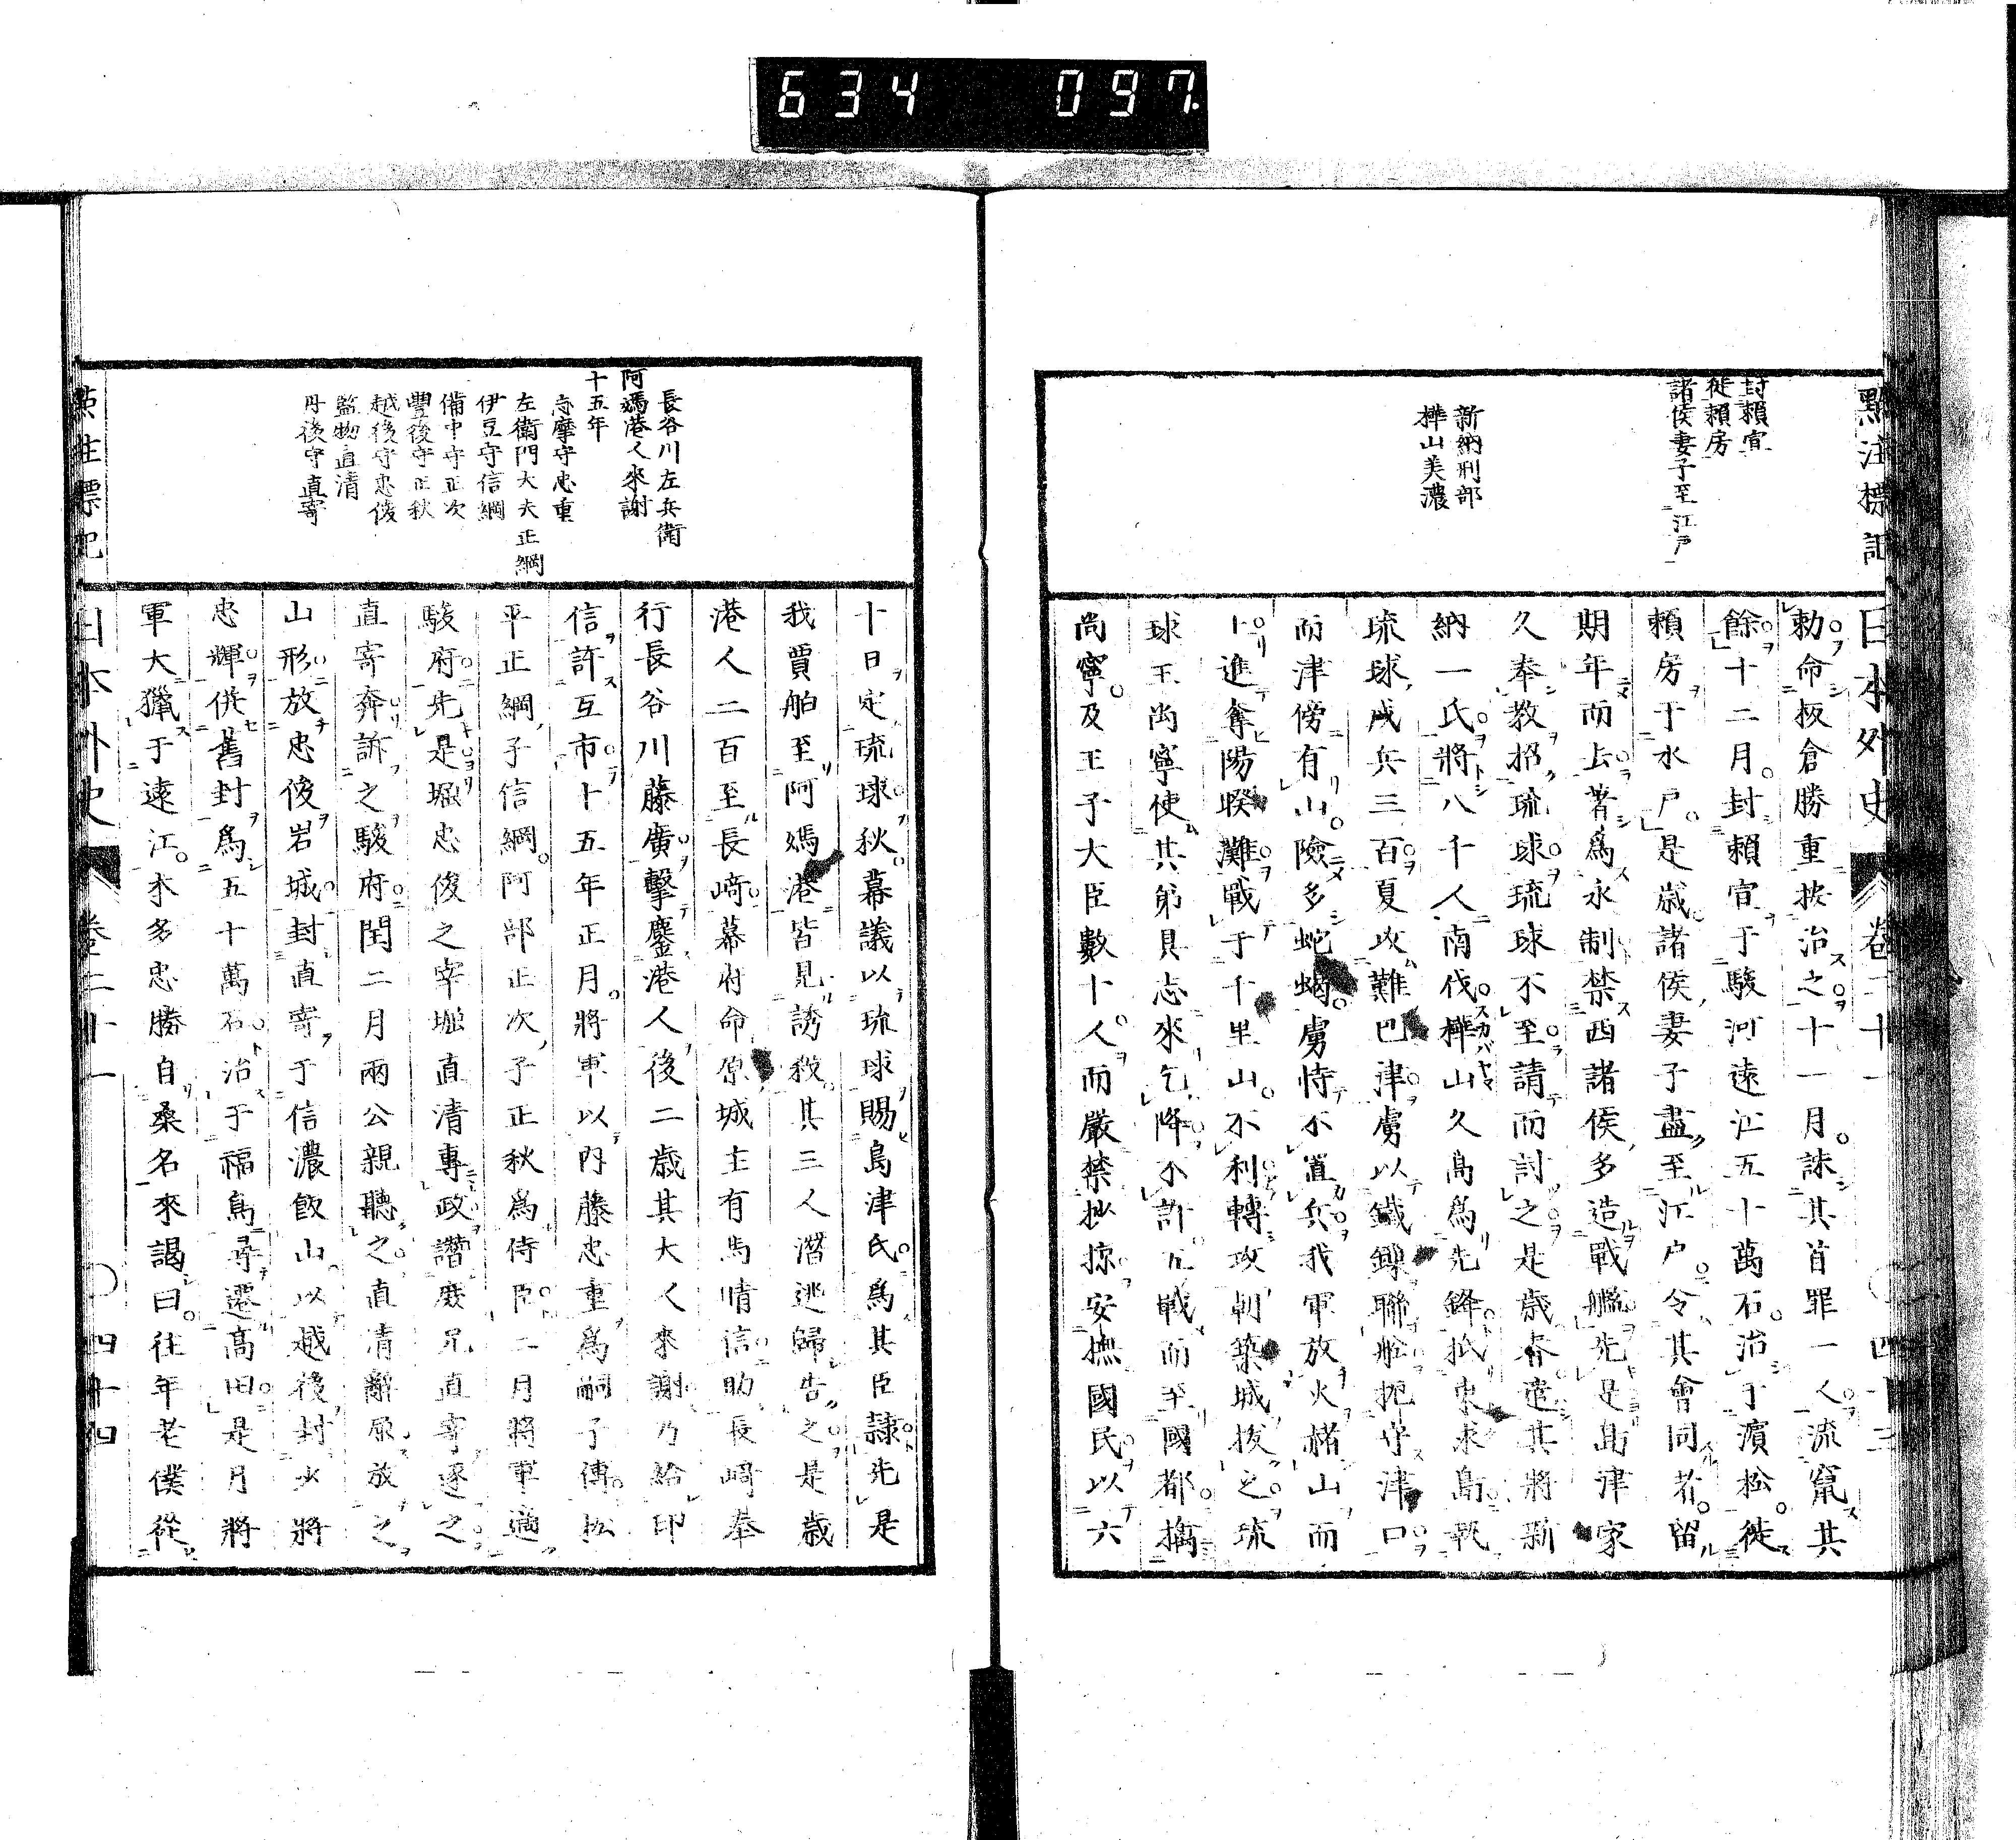 634 097
點注標記 日本外史 卷二十一 四十三
封賴宣
徙賴房
諸侯妻子至江戶
新納刑部
樺山美濃
勅命板倉勝重按治之十一月。誅其首罪一人流竄其
餘十二月。封賴宣于駿河遠江五十萬石。治于濱松。徙
賴房于水戶。是歲。諸侯妻子盡至江戶。令其會同者。留
期年而去著爲永制禁西諸侯多造戰艦先是島津家
久奉教招琉球琉球不至請而討之是歲春遣其將新
納一氏將八千人南伐樺山久高爲先鋒抵東求島戰
琉球戍兵三百夏攻難巴津虜以鐵鏁聯舩扼守津口
而津傍有山。險多蛇蝎。虜恃不置兵我軍放火赭山而
上進奪陽睽灘戰于千里山。不利轉攻朝築城拔之琉
球王尚寧使其弟具志來乞降不許五戰而至國都。擒
尚寧。及王子大臣數十人。而嚴禁抄掠。安撫國民以六
長谷川左兵衛
阿媽港人來謝
十五年
志摩守忠重
左衛門大夫正綱
伊豆守信綱
備中守正次
豐後守正秋
越後守忠俊
監物直清
丹後守直寄
十日定琉球秋。幕議以琉球賜島津氏。爲其臣隷先是
我賈舶至阿媽港皆見誘殺。其三人潛逃歸告之是歲
港人二百至長崎幕府命原城主有馬晴信助長崎奉
行長谷川藤廣擊鏖港人後二歲其大人來謝乃給印
信許互市十五年正月。將軍以內藤忠重爲嗣子傅。松
平正綱子信綱。阿部正次子正秋爲侍臣二月將軍適
駿府先是堀忠俊之宰堀直清專政譖廢兄直寄逐之
直寄奔訴之駿府閏二月兩公親聽之。直清辭屈放之
山形放忠俊岩城封直寄于信濃飯山。以越後封少將
忠輝併舊封爲五十萬石治于福島尋遷高田是月將
軍大獵于遠江。本多忠勝自桑名來謁曰。往年老僕從
點注標記 日本外史 卷二十一 四十四